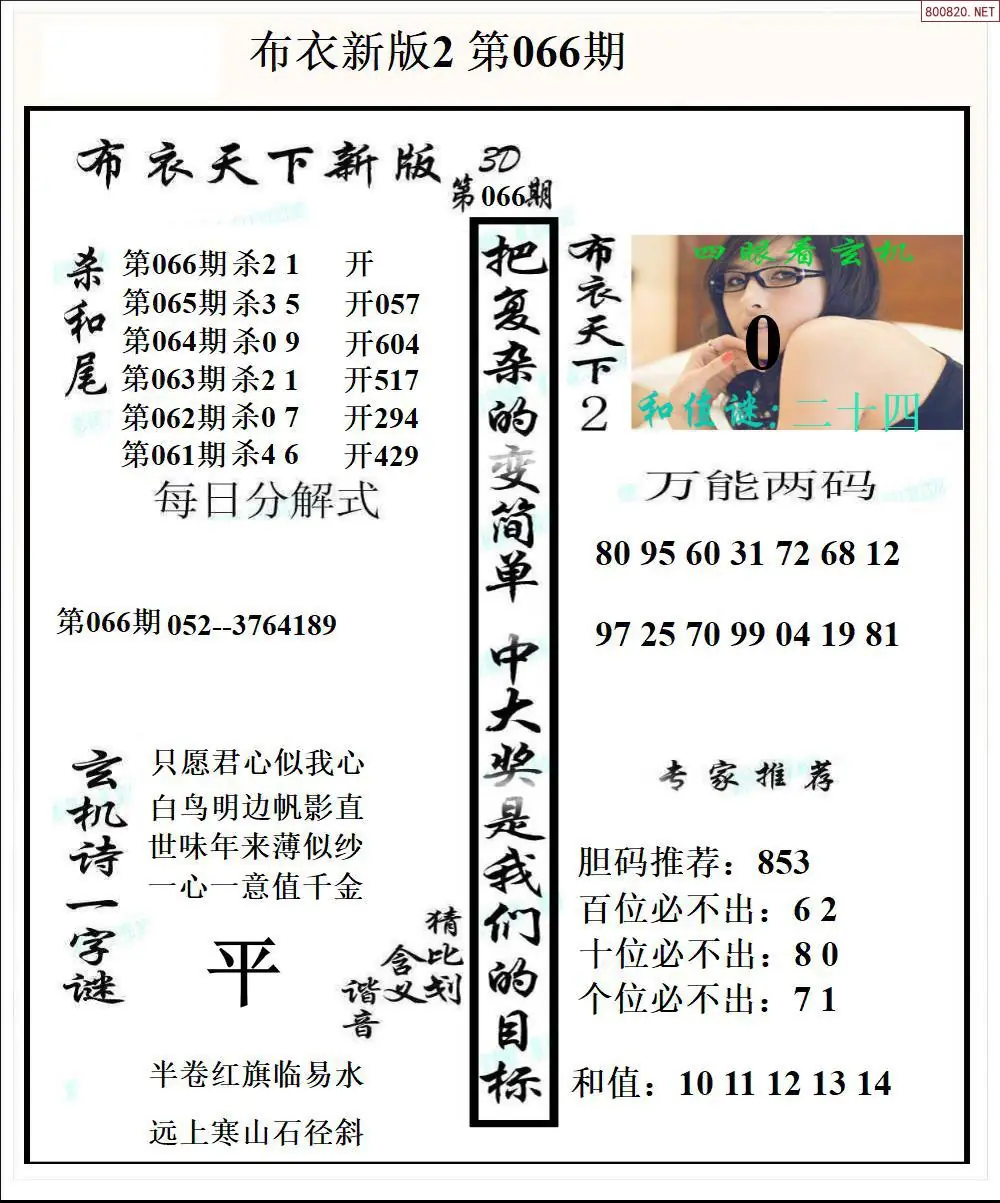 800820.NET
布衣新版2 第066期
布衣天下新版 3D
第066期
杀和尾
第066期 杀2 1 开
第065期 杀3 5 开057
第064期 杀0 9 开604
第063期 杀2 1 开517
第062期 杀0 7 开294
第061期 杀4 6 开429
每日分解式
第066期 052--3764189
玄机诗一字谜
只愿君心似我心
白鸟明边帆影直
世味年来薄似纱
一心一意值千金
平
猜比划
含义
谐音
半卷红旗临易水
远上寒山石径斜
把复杂的变简单 中大奖是我们的目标
布衣天下2
四眼看玄机
0
和值谜:二十四
万能两码
80 95 60 31 72 68 12
97 25 70 99 04 19 81
专家推荐
胆码推荐：853
百位必不出：6 2
十位必不出：8 0
个位必不出：7 1
和值：10 11 12 13 14